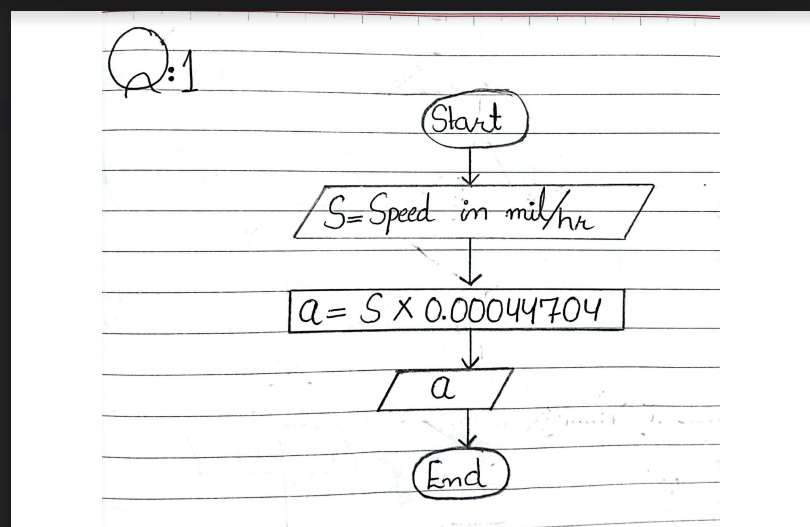 Q:1
Start
S=Speed in mil/hr
a= S × 0.00044704
a
End